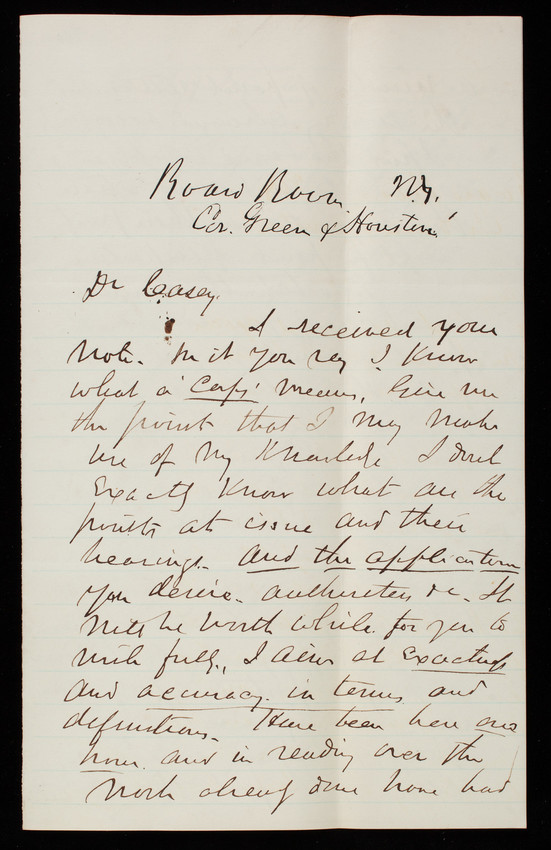 Board Room N.Y.
Cor. Green & Houston
Dr Casey.
I received your
note. In it you say I know
what a 'Corps' means, Give me
the points that I may make
use of my Knowledge I dont
Exactly Know what are the
points at issue and their
bearings. and the application
you desire. authorities &c. It
will be worth while for you to
write fully, I aim at Exactness
and accuracy in terms and
definitions. Have been here one
hour and in reading over the
work already done have had